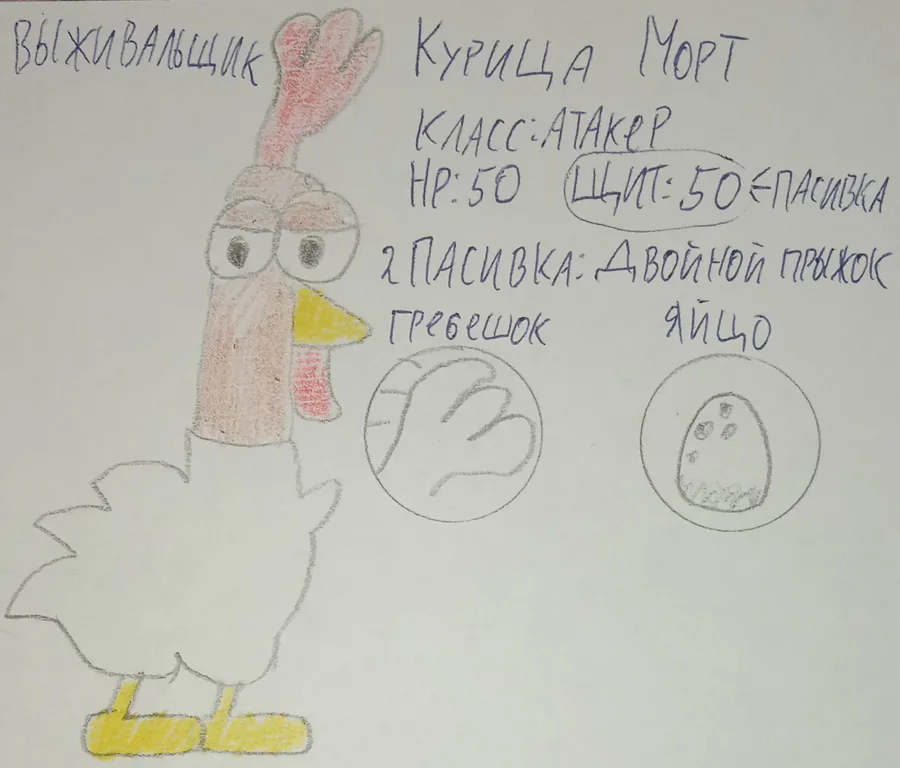 ВЫЖИВАЛЬЩИК
КУРИЦА МОРТ
КЛАСС: АТАКЕР
HP: 50 ЩИТ: 50 ← ПАСИВКА
2 ПАСИВКА: ДВОЙНОЙ ПРЫЖОК
ГРЕБЕШОК ЯЙЦО